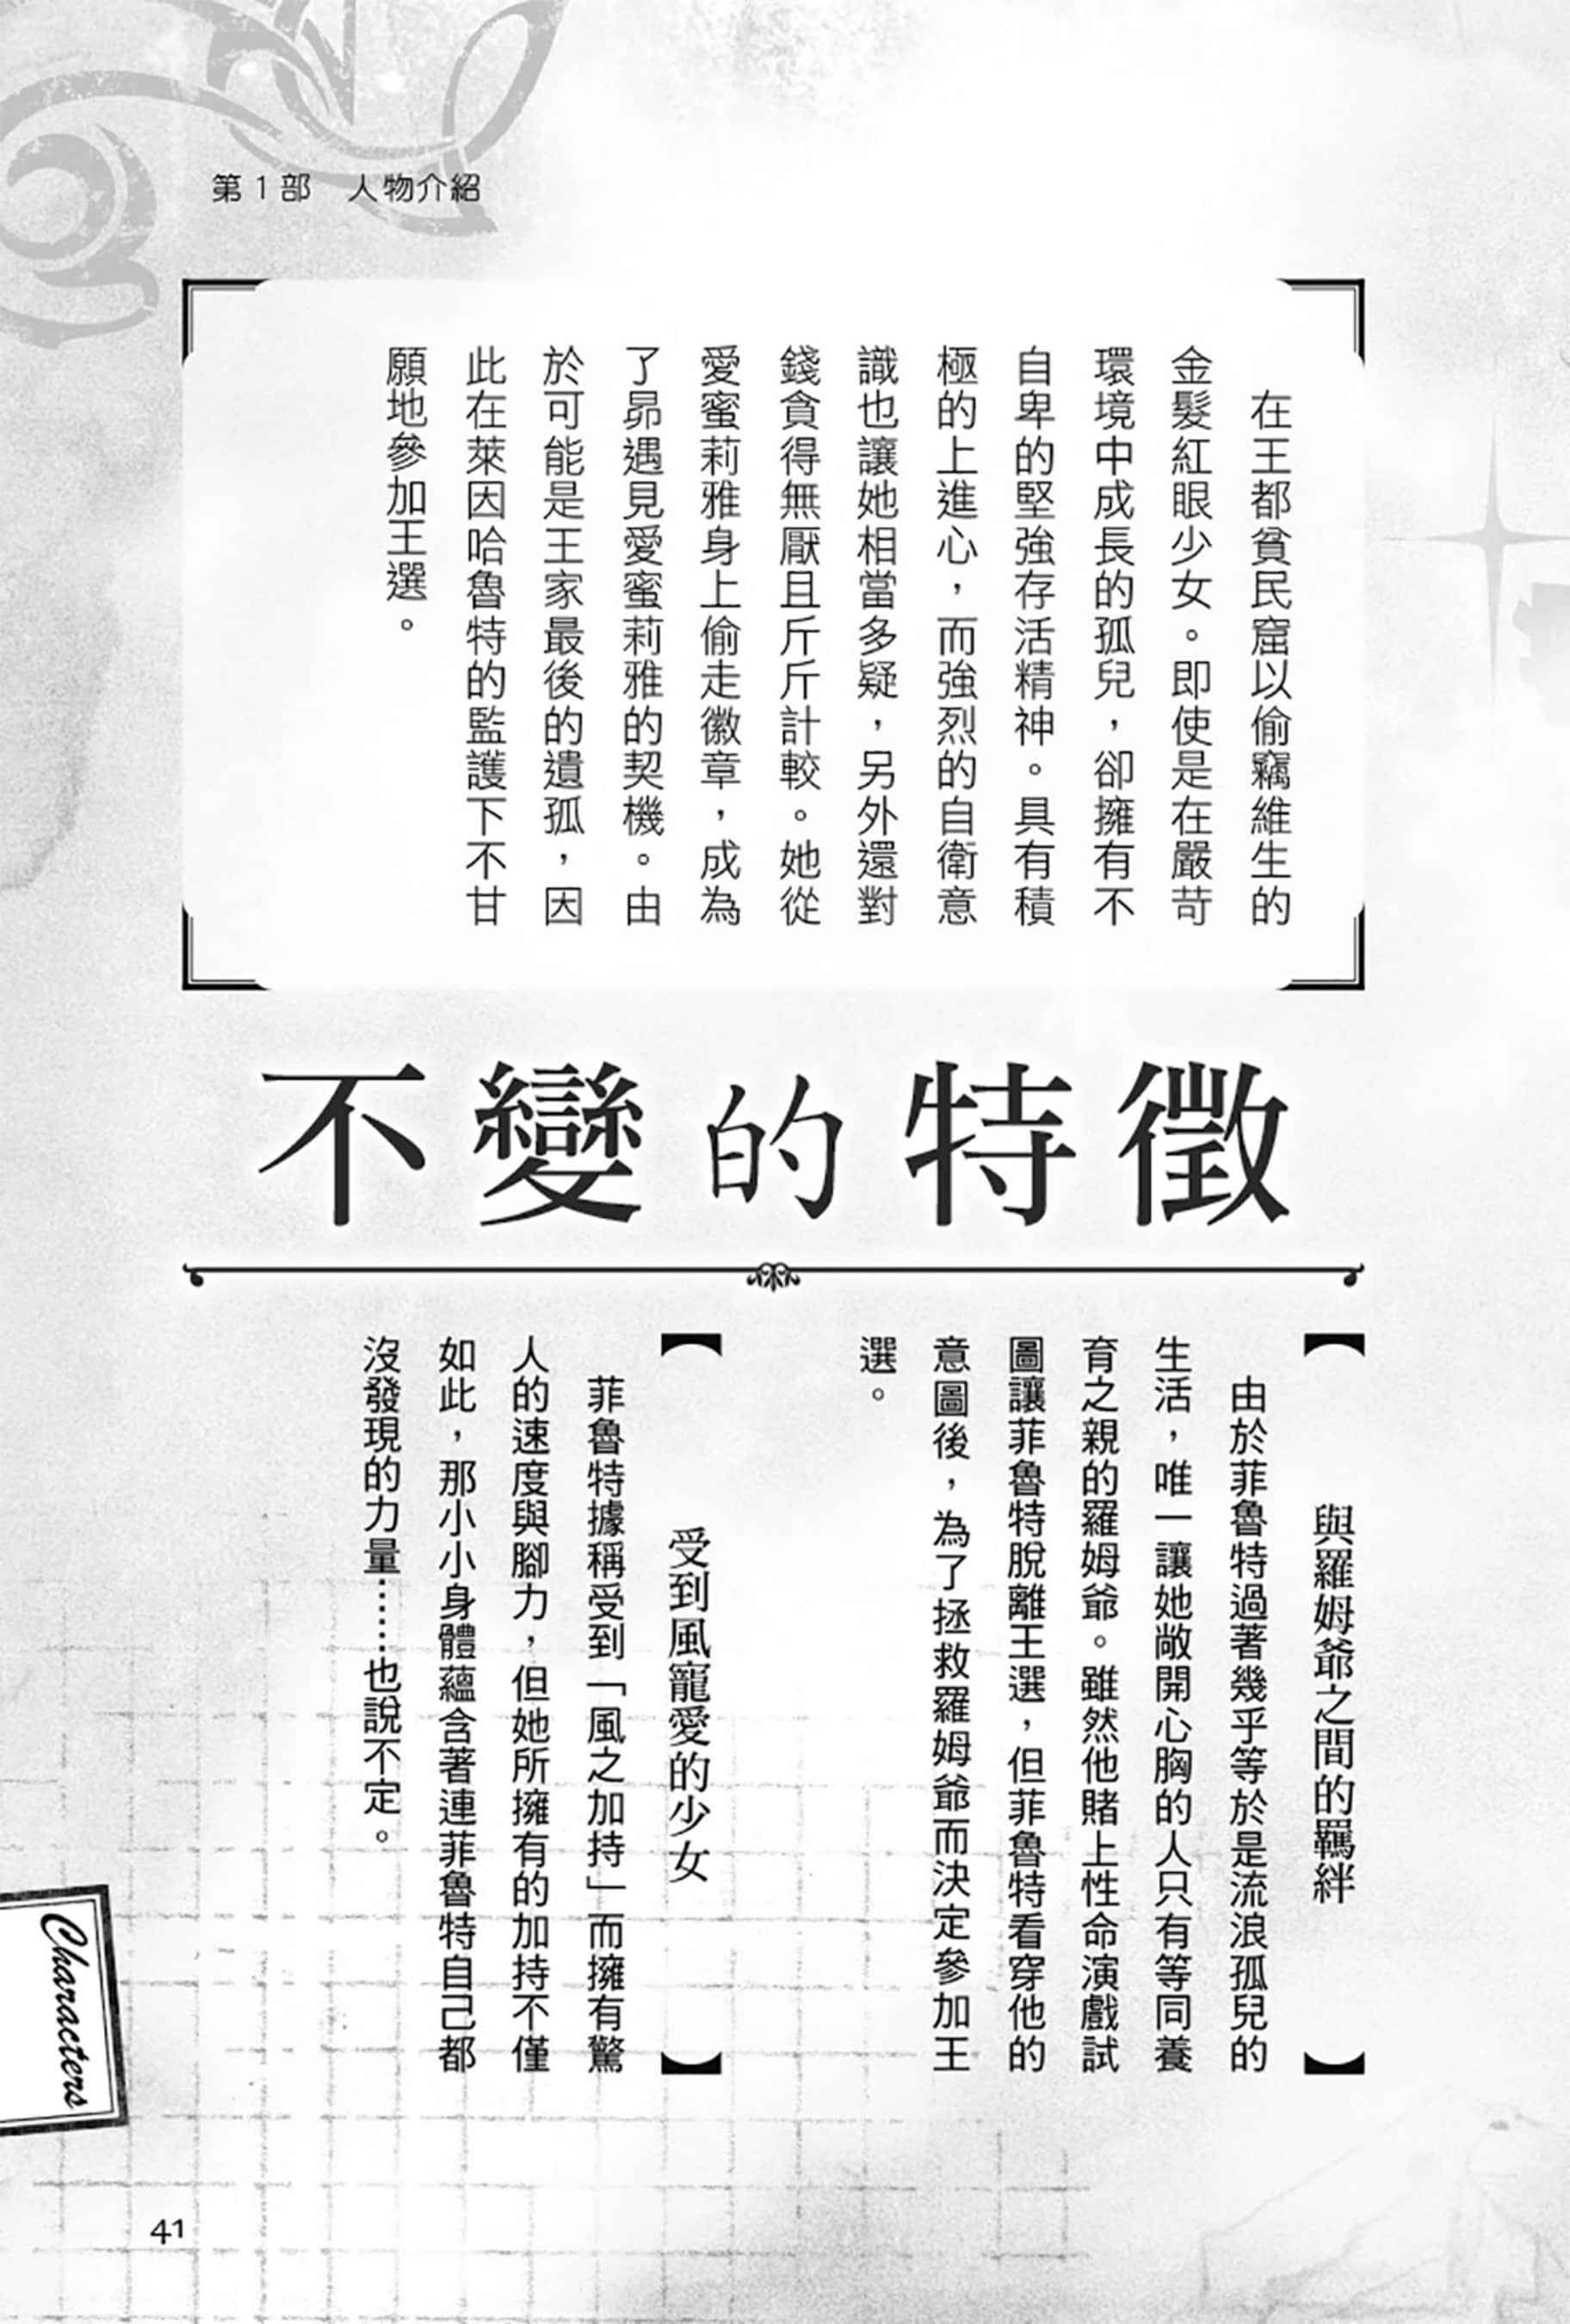 第1部　人物介紹
在王都貧民窟以偷竊維生的
金髮紅眼少女。即使是在嚴苛
環境中成長的孤兒，卻擁有不
自卑的堅強存活精神。具有積
極的上進心，而強烈的自衛意
識也讓她相當多疑，另外還對
錢貪得無厭且斤斤計較。她從
愛蜜莉雅身上偷走徽章，成為
了昴遇見愛蜜莉雅的契機。由
於可能是王家最後的遺孤，因
此在萊因哈魯特的監護下不甘
願地參加王選。
不變的特徵
【與羅姆爺之間的羈絆】
由於菲魯特過著幾乎等於是流浪孤兒的
生活，唯一讓她敞開心胸的人只有等同養
育之親的羅姆爺。雖然他賭上性命演戲試
圖讓菲魯特脫離王選，但菲魯特看穿他的
意圖後，為了拯救羅姆爺而決定參加王
選。
【受到風寵愛的少女】
菲魯特據稱受到「風之加持」而擁有驚
人的速度與腳力，但她所擁有的加持不僅
如此，那小小身體蘊含著連菲魯特自己都
沒發現的力量……也說不定。
Characters
41